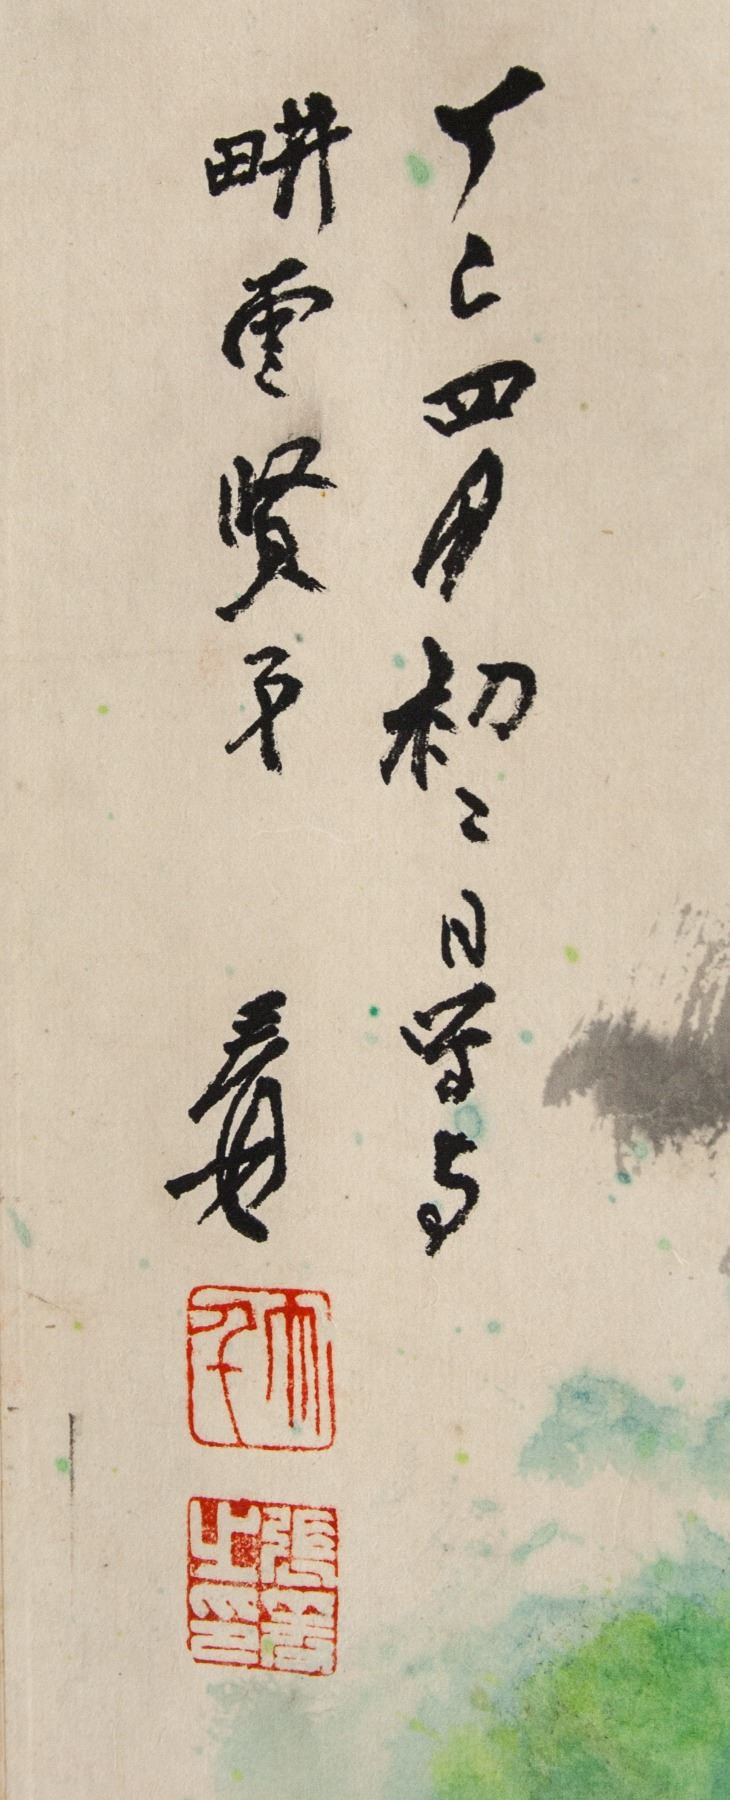 丁巳四月初二日寫与
畊雲賢弟 爰
大千
張爰之印